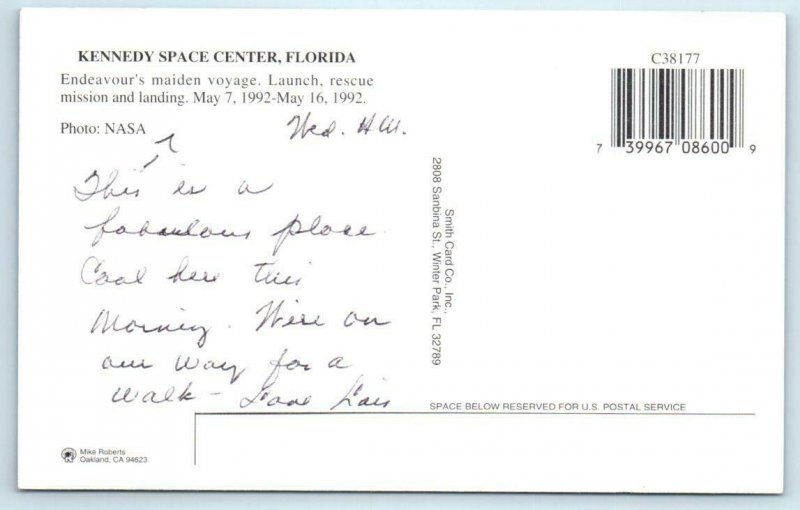 KENNEDY SPACE CENTER, FLORIDA
Endeavour's maiden voyage. Launch, rescue
mission and landing. May 7, 1992-May 16, 1992.
Photo: NASA
Wed.
This is a
fabulous place
Cool here this
Morning. We're on
our way for a
walk - Love Lois
C38177
7 39967 08600 9
Smith Card Co., Inc.,
2808 Sanbina St., Winter Park, FL 32789
SPACE BELOW RESERVED FOR U.S. POSTAL SERVICE
Mike Roberts
Oakland, CA 94623